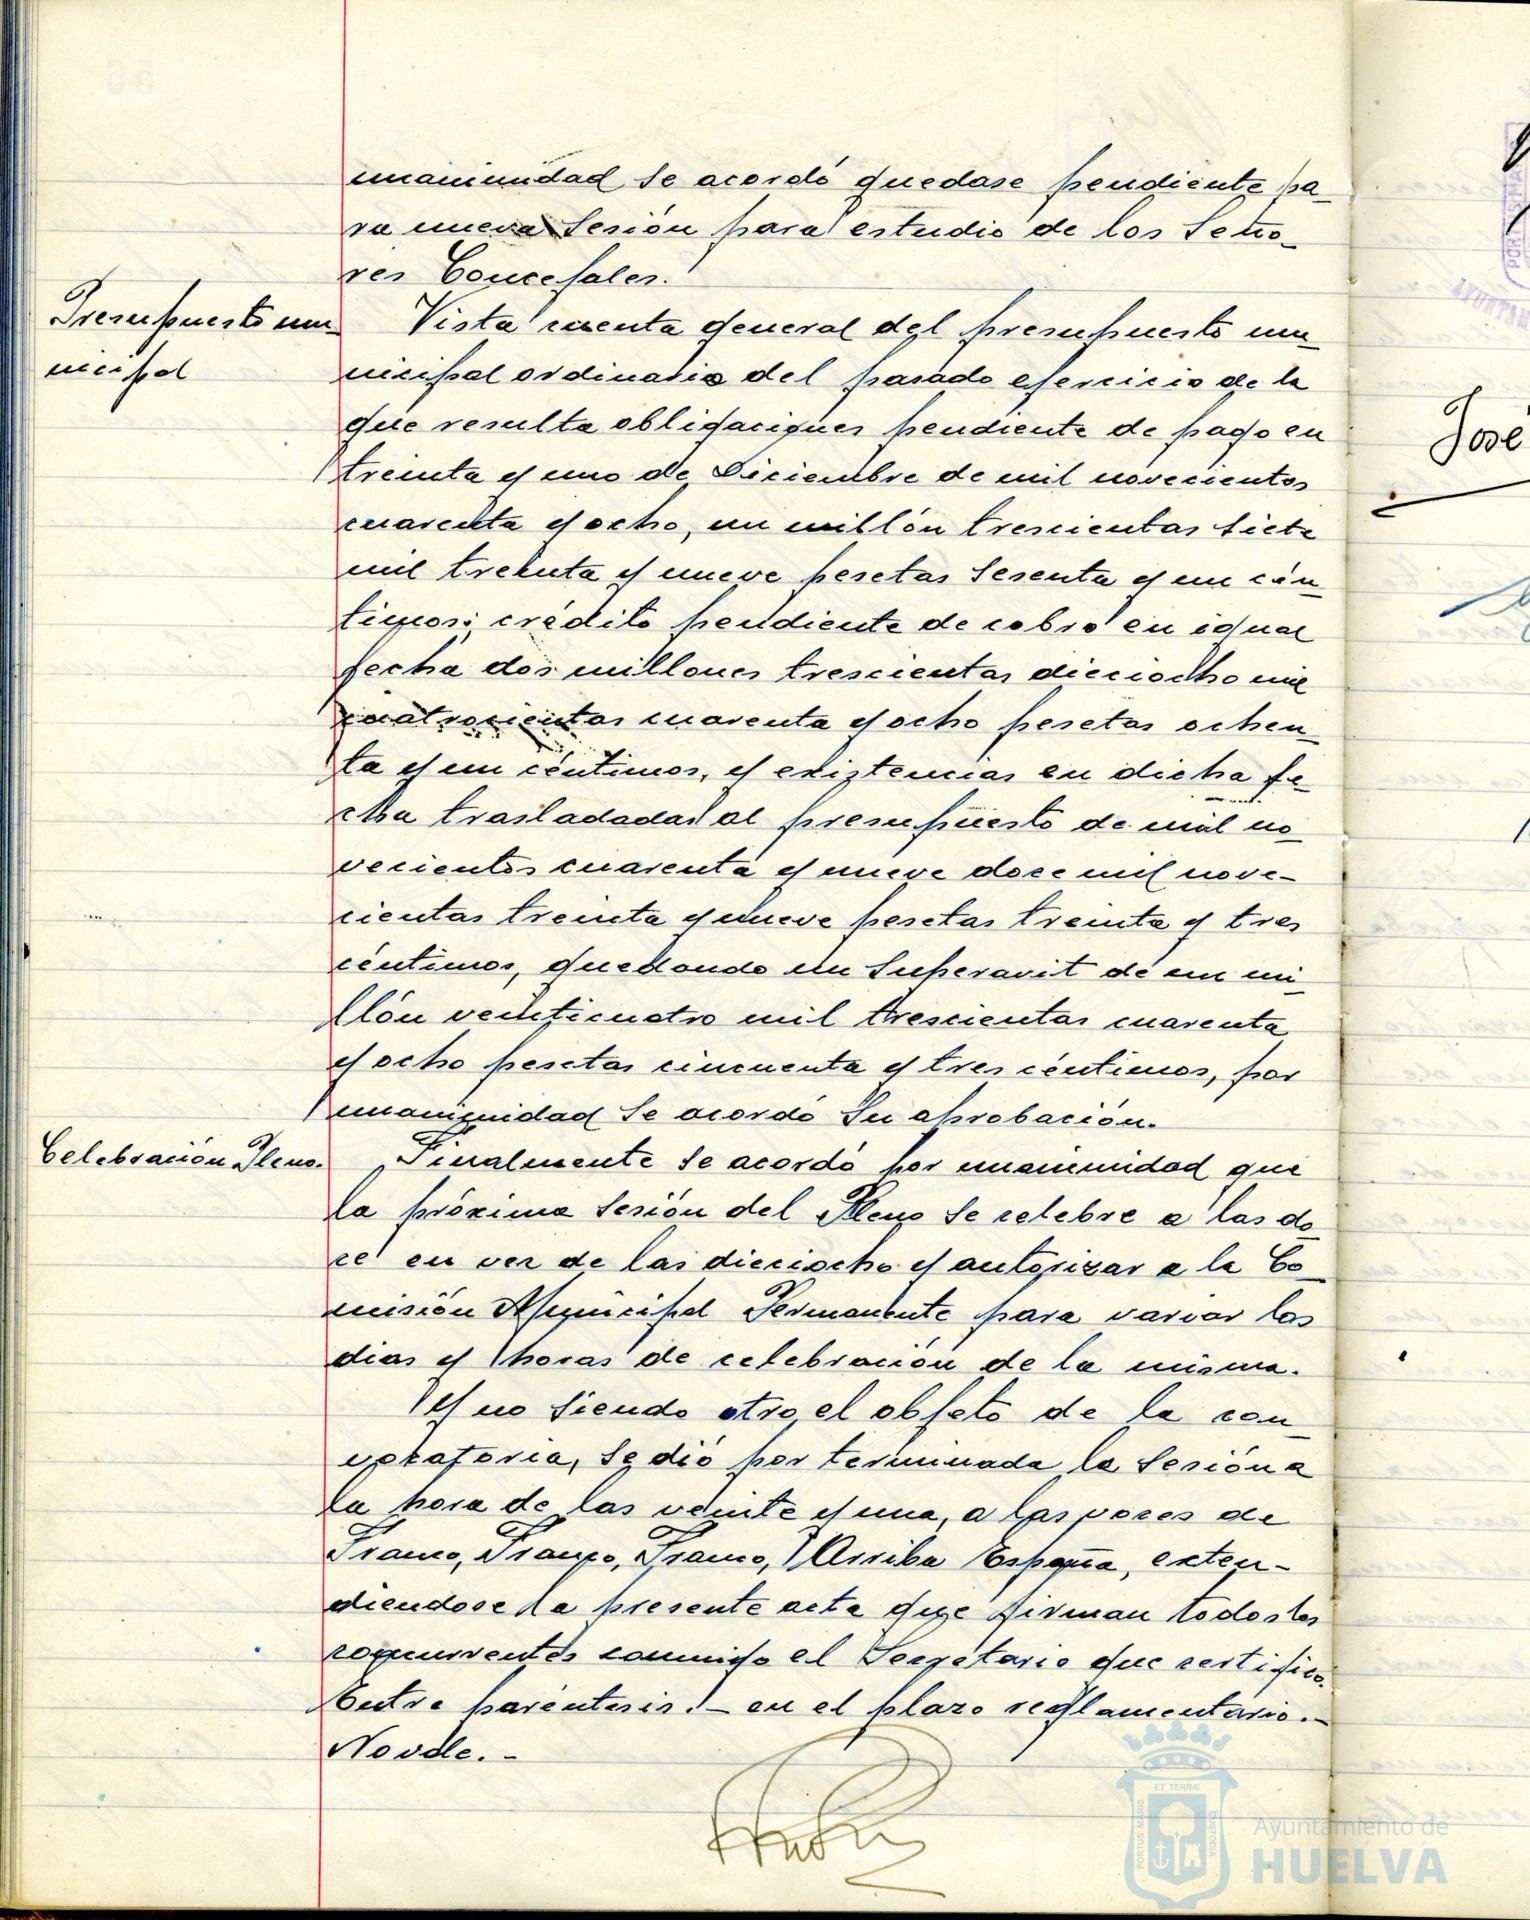 unanimidad se acordó quedase pendiente pa-
ra nueva sesión para estudio de los Seño-
res Concejales.
Presupuesto mu-
nicipal
Vista cuenta general del presupuesto mu-
nicipal ordinario del pasado ejercicio de la
que resulta obligaciones pendiente de pago en
treinta y uno de Diciembre de mil novecientos
cuarenta y ocho, un millón trescientas siete
mil treinta y nueve pesetas sesenta y un cén-
timos; crédito pendiente de cobro en igual
fecha dos millones trescientas dieciocho mil
cuatrocientas cuarenta y ocho pesetas ochen-
ta y un céntimos, y existencias en dicha fe-
cha trasladadas al presupuesto de mil no-
vecientos cuarenta y nueve doce mil nove-
cientas treinta y nueve pesetas treinta y tres
céntimos, quedando un Superavit de un mi-
llón veinticuatro mil trescientas cuarenta
y ocho pesetas cincuenta y tres céntimos, por
unanimidad se acordó su aprobación.
Celebración Pleno.
Finalmente se acordó por unanimidad que
la próxima sesión del Pleno se celebre a las do-
ce en vez de las dieciocho y autorizar a la Co-
misión Municipal Permanente para variar los
dias y horas de celebración de la misma.
Y no siendo otro el objeto de la con-
vocatoria, se dió por terminada la sesión a
la hora de las veinte y una, a las voces de
Franco, Franco, Franco, ¡Arriba España, exten-
diendose la presente acta que firman todos los
concurrentes conmigo el Secretario que certifico.
Entre parentesis.- en el plazo reglamentario.-
No vale.-
José
ET TERRÆ
PORTUS MARIS
CUSTODIA
Ayuntamiento de
HUELVA